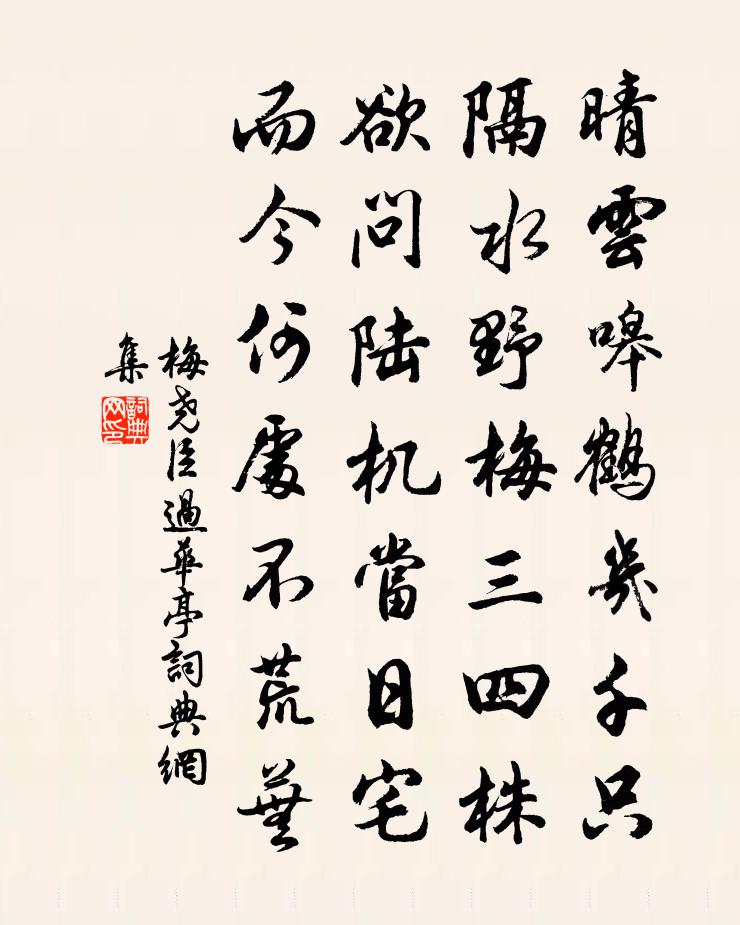 晴雲嗥鶴幾千只
隔水野梅三四株
欲問陆机當日宅
而今何處不荒蕪
梅尧臣過華亭詞典網
集
詞典網印